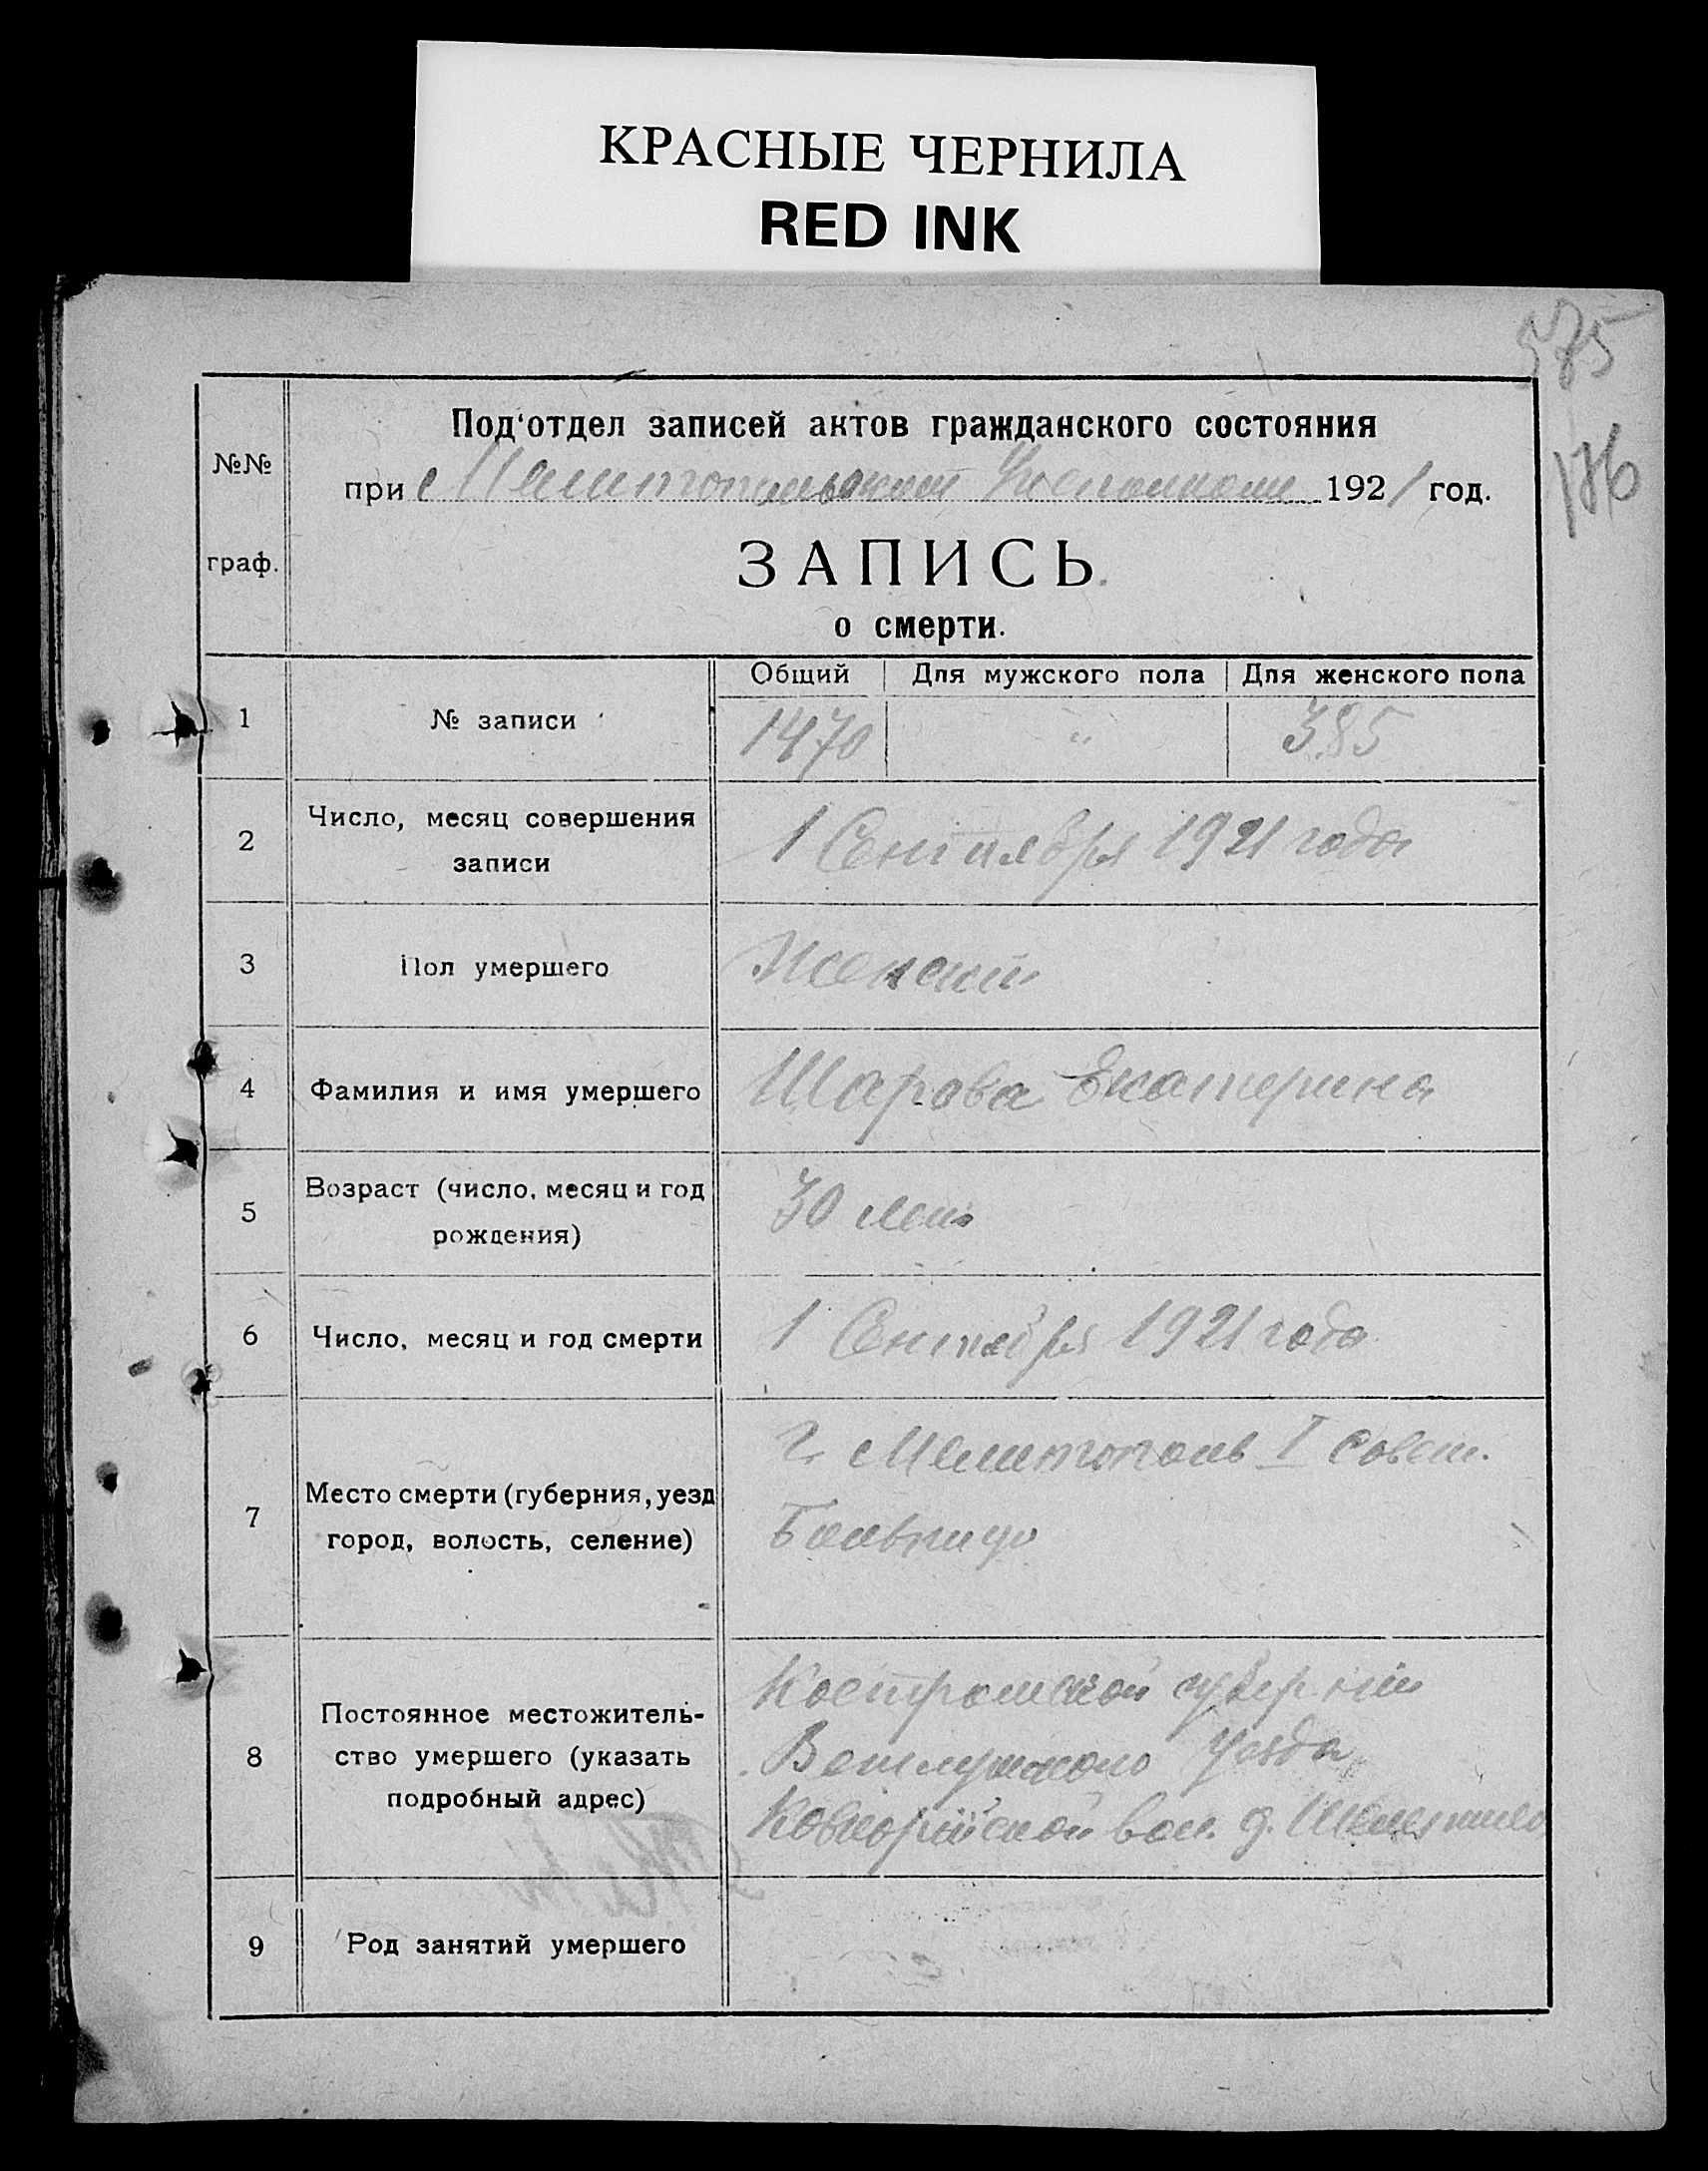 КРАСНЫЕ ЧЕРНИЛА
RED INK
585
176
Под‘отдел записей актов гражданского состояния
№№
при Мелитопольском Исполкоме 1921 год.
граф.
ЗАПИСЬ
о смерти.
Общий Для мужского пола Для женского пола
1 № записи 1470 " 385
2 Число, месяц совершения
записи
1 Сентября 1921 года
3 Пол умершего Женский
4 Фамилия и имя умершего Шарова Екатерина
5 Возраст (число, месяц и год
рождения)
30 лет
6 Число, месяц и год смерти 1 Сентября 1921 года
г. Мелитополь I совет.
7 Место смерти (губерния, уезд
город, волость, селение)
Больница
Костромской губернии
8 Постоянное местожитель-
ство умершего (указать
подробный адрес)
Ветлужского уезда
вол. д.
9 Род занятий умершего